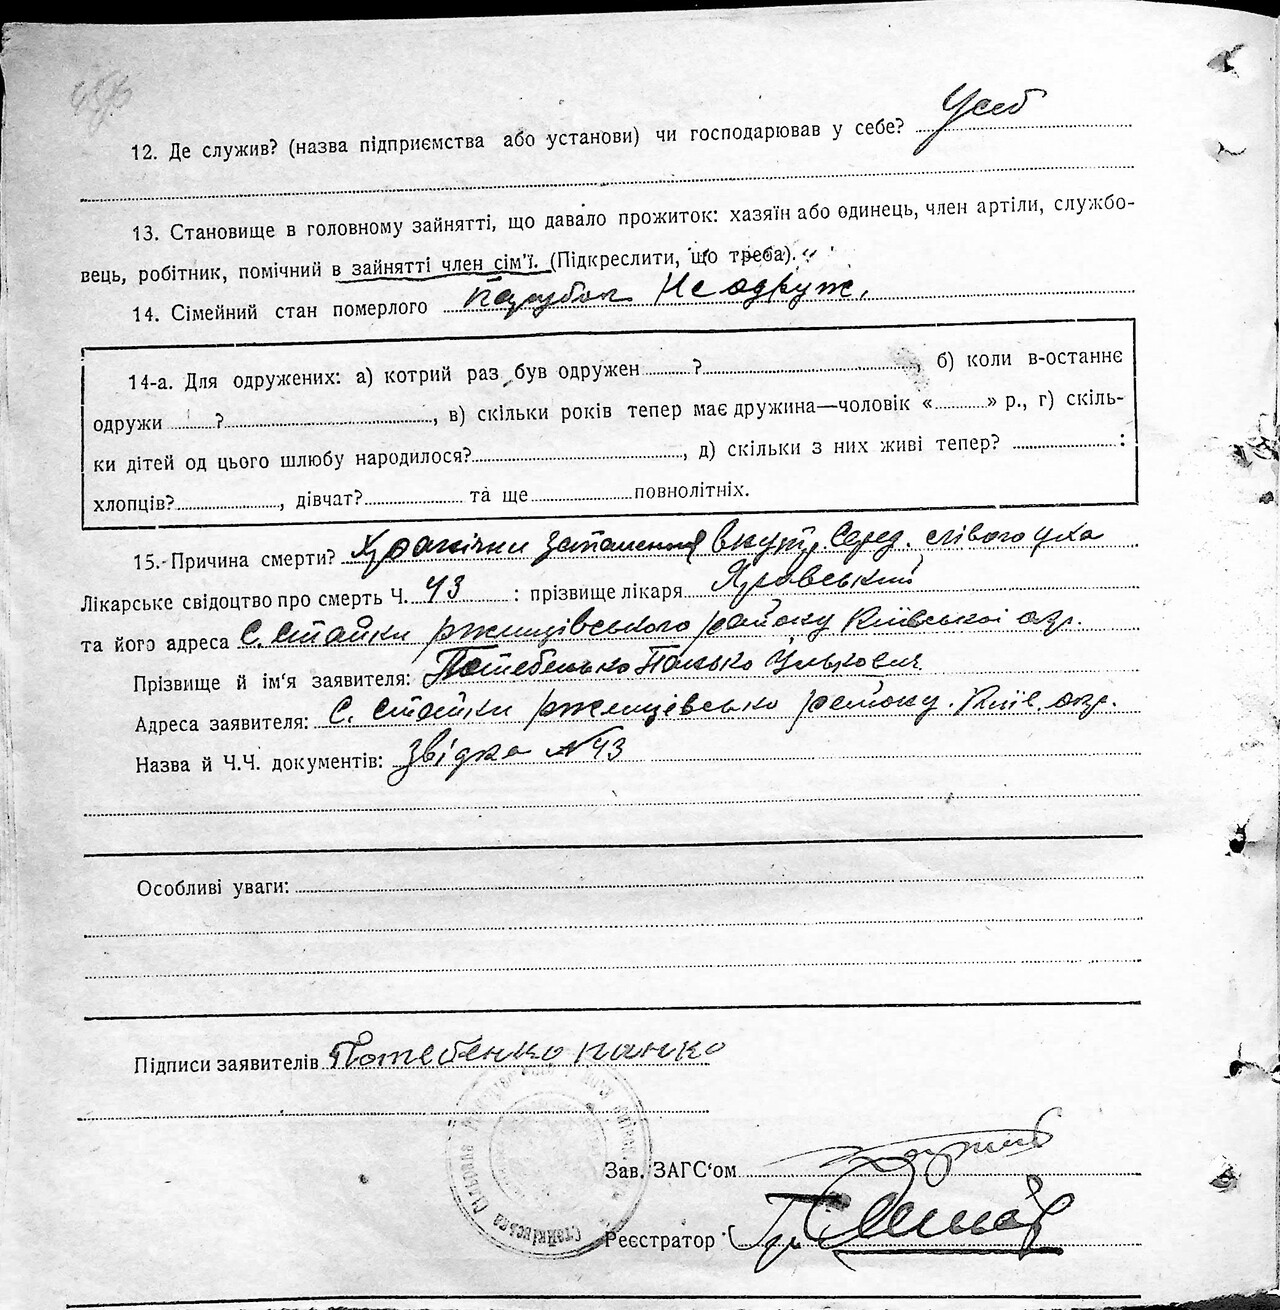 12. Де служив? (назва підприємства або установи) чи господарював у себе? У себ
13. Становище в головному зайнятті, що давало прожиток: хазяїн або одинець, член артіли, службо-
вець, робітник, помічний в зайнятті член сім'ї. (Підкреслити, що треба).
14. Сімейний стан померлого парубок Неодруж.
14-а. Для одружених: а) котрий раз був одружен ? , б) коли в-останнє
одружи ? , в) скільки років тепер має дружина—чоловік « » р., г) скіль-
ки дітей од цього шлюбу народилося? , д) скільки з них живі тепер? :
хлопців? , дівчат? та ще повнолітніх.
15. Причина смерти? Хронічни запалення внутр. серед. лівого уха
Лікарське свідоцтво про смерть Ч. 43 : прізвище лікаря Яровський
та його адреса С. Стайки ржищівського району Київської окр.
Прізвище й ім'я заявителя: Потебенько Панько
Адреса заявителя: С. Стайки ржищівсько району. Київ. окр.
Назва й Ч.Ч. документів: Звідка №43
Особливі уваги:
Підписи заявителів Потебенко панко
Зав. ЗАГС'ом
Реєстратор
Стайківська Сільська